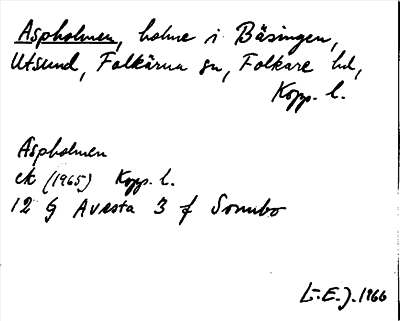 Aspholmen, holme i Bäsingen,
Utsund, Folkärna sn, Folkare hd,
Kopp. l.
Aspholmen
ek (1965) Kopp. l.
12 G Avesta 3 f Sonnbo
L.E.J. 1966